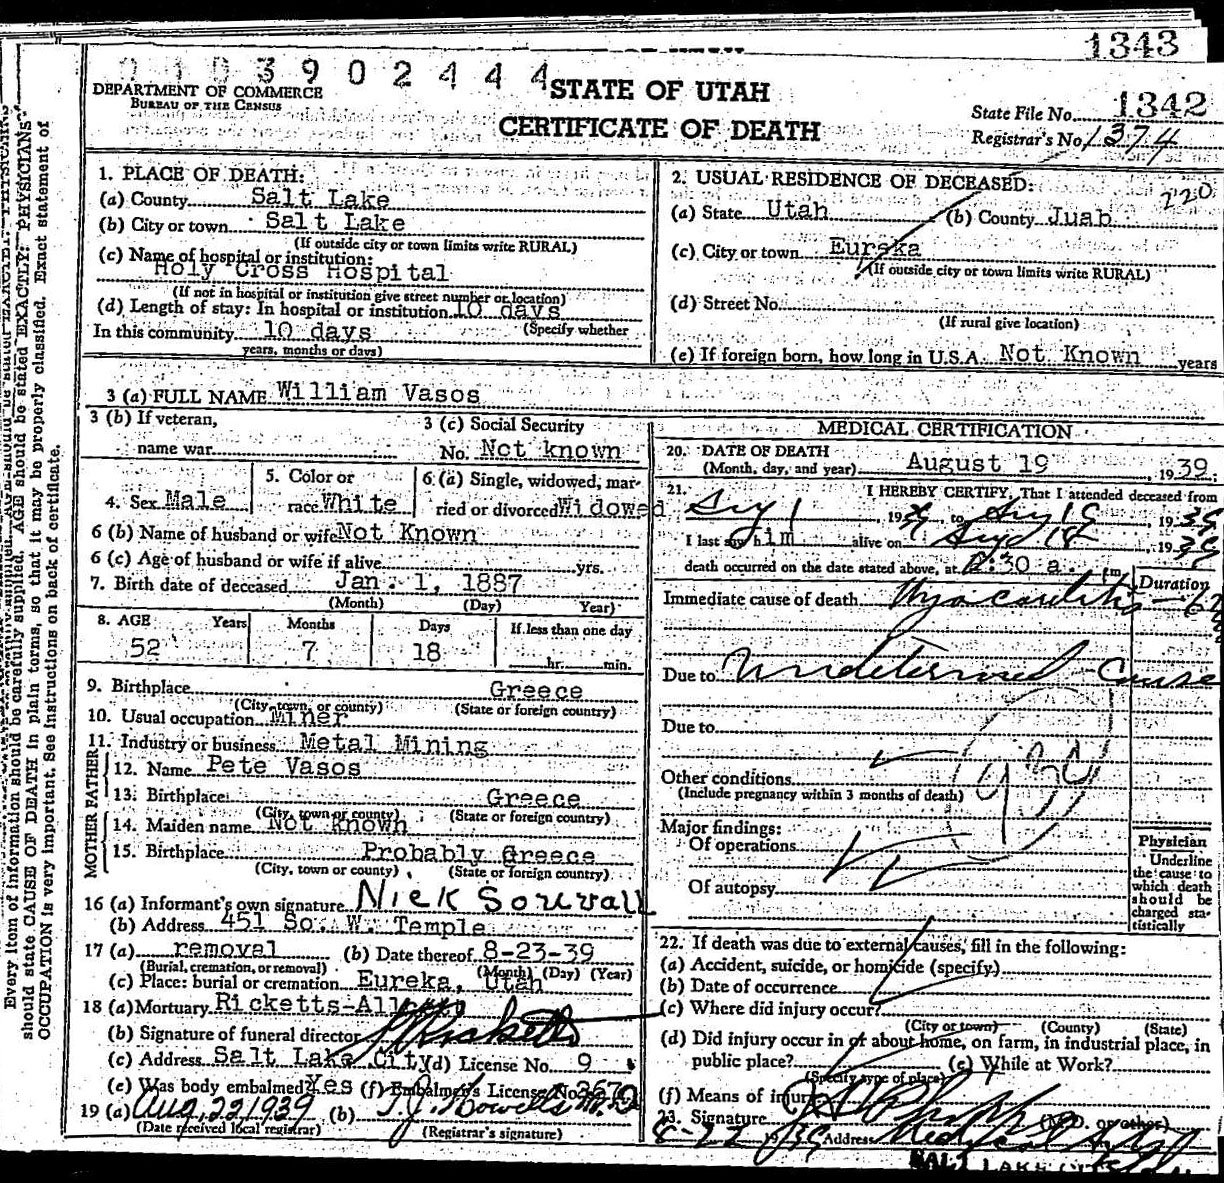 1343
3 9 0 2 4 4 4
DEPARTMENT OF COMMERCE
BUREAU OF THE CENSUS
STATE OF UTAH
CERTIFICATE OF DEATH
State File No. 1342
Registrar's No. 1374
1. PLACE OF DEATH:
(a) County Salt Lake
(b) City or town Salt Lake
(If outside city or town limits write RURAL)
(c) Name of hospital or institution:
Holy Cross Hospital
(If not in hospital or institution give street number or location)
(d) Length of stay: In hospital or institution 10 days
In this community 10 days (Specify whether
years, months or days)
2. USUAL RESIDENCE OF DECEASED:
220
(a) State Utah (b) County Juab
(c) City or town Eureka
(If outside city or town limits write RURAL)
(d) Street No.
(If rural give location)
(e) If foreign born, how long in U.S.A. Not Known years
3 (a) FULL NAME William Vasos
3 (b) If veteran,
name war
3 (c) Social Security
No. Not known
4. Sex Male
5. Color or
race White
6 (a) Single, widowed, mar-
ried or divorced Widowed
6 (b) Name of husband or wife Not Known
6 (c) Age of husband or wife if alive yrs.
7. Birth date of deceased Jan. 1, 1887
(Month) (Day) Year)
8. AGE Years Months Days If less than one day
52 7 18 hr. min.
9. Birthplace Greece
(City, town, or county) (State or foreign country)
10. Usual occupation Miner
11. Industry or business Metal Mining
FATHER
12. Name Pete Vasos
13. Birthplace Greece
(City, town or county) (State or foreign country)
MOTHER
14. Maiden name Not known
15. Birthplace Probably Greece
(City, town or county) (State or foreign country)
16 (a) Informant's own signature Nick Souvall
(b) Address 451 So. W. Temple
17 (a) removal (b) Date thereof 8-23-39
(Burial, cremation, or removal) (Month) (Day) (Year)
(c) Place: burial or cremation Eureka, Utah
18 (a) Mortuary
(b) Signature of funeral director
(c) Address Salt Lake City (d) License No. 9
(e) Was body embalmed? Yes (f) Embalmer's License No.
19 (a) Aug. 22, 1939 (b) T. J. Howells M.D.
(Date received local registrar) (Registrar's signature)
MEDICAL CERTIFICATION
20. DATE OF DEATH
(Month, day, and year) August 19 1939.
21. I HEREBY CERTIFY, That I attended deceased from
Aug 1 1939 to Aug 19 1939
I last saw him alive on Aug 18, 1939
death occurred on the date stated above, at 30 a. m
Duration
Immediate cause of death Myocarditis
Due to Undetermined Cause
Due to
Other conditions
(Include pregnancy within 3 months of death)
Major findings:
Of operations
Of autopsy
Physician
Underline
the cause to
which death
should be
charged sta-
tistically
22. If death was due to external causes, fill in the following:
(a) Accident, suicide, or homicide (specify)
(b) Date of occurrence
(c) Where did injury occur?
(City or town) (County) (State)
(d) Did injury occur in or about home, on farm, in industrial place, in
public place? (e) While at Work?
(Specify type of place)
(f) Means of injury
23. Signature (M.D. or other)
8-22 1939 Address Medical
SALT LAKE CITY
Every item of information should be carefully supplied. AGE should be stated EXACTLY. PHYSICIANS
should state CAUSE OF DEATH in plain terms, so that it may be properly classified. Exact statement of
OCCUPATION is very important. See instructions on back of certificate.